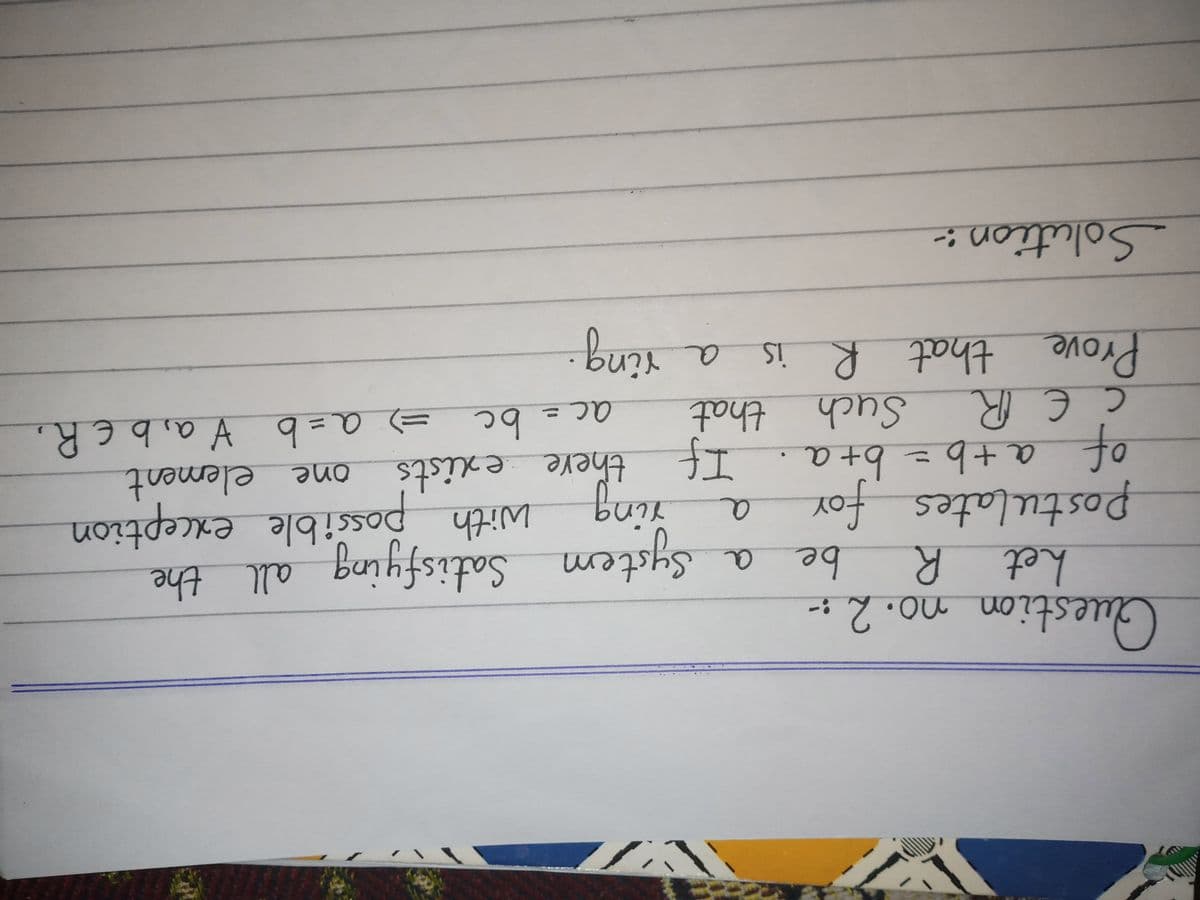 Question no. 2 :-
Let R be a System Satisfying all the
postulates for a ring with possible exception
of a + b = b + a . If there exists one element
c ∈ R Such that ac = bc => a = b ∀ a, b ∈ R.
Prove that R is a ring.
Solution :-